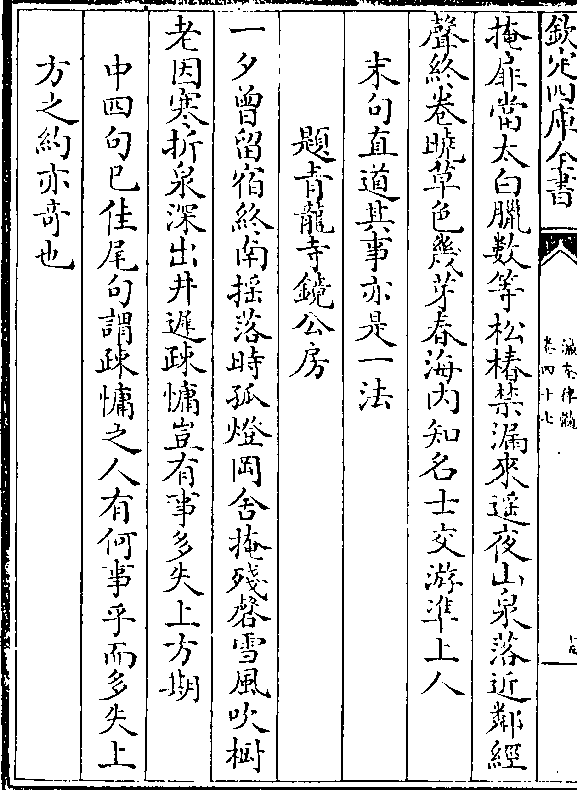 欽定四庫全書
瀛奎律髓
卷四十七
掩扉當太白臘數等松椿禁漏來遥夜山泉落近鄰經
聲終卷曉草色幾芽春海内知名士交游準上人
末句直道其事亦是一法
題青龍寺鏡公房
一夕曾留宿終南揺落時孤燈岡舍掩殘磬雪風吹樹
老因寒折泉深出井遲疎慵豈有事多失上方期
中四句已佳尾句謂疎慵之人有何事乎而多失上
方之約亦奇也